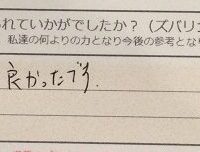 れていかがでしたか？（ズバリ
私達の何よりの力となり今後の参考とな
良かったです